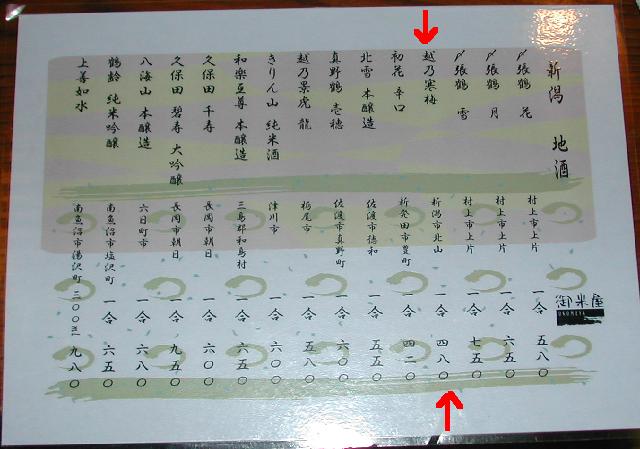 新潟 地酒
〆張鶴 花 村上市上片 一合 五八〇
〆張鶴 月 村上市上片 一合 六五〇
〆張鶴 雪 村上市上片 一合 七五〇
越乃寒梅 新潟市北山 一合 四八〇
初花 辛口 新発田市豊町 一合 四二〇
北雪 本醸造 佐渡市徳和 一合 五五〇
真野鶴 壱穂 佐渡市真野町 一合 六〇〇
越乃景虎 龍 栃尾市 一合 五八〇
きりん山 純米酒 津川市 一合 六五〇
和楽互尊 本醸造 三島郡和島村 一合 五六〇
久保田 千寿 長岡市朝日 一合 六〇〇
久保田 碧寿 大吟醸 長岡市朝日 一合 九五〇
八海山 本醸造 六日町市 一合 六八〇
鶴齢 純米吟醸 南魚沼市塩沢町 一合 六五〇
上善如水 南魚沼市湯沢町 三〇〇ml 九八〇
御米屋
ONOMEYA